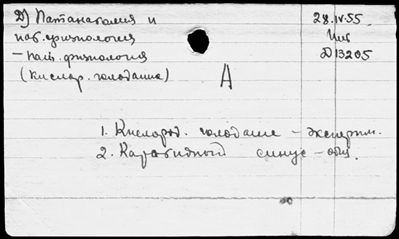 Д) Патанатомия и
пат. физиология
– пат. физиология
(кислор. голодание)
28.IV.55
Д13205
А
1. Кислород. голодание – эксперим.
2. Каротидный синус – общ.